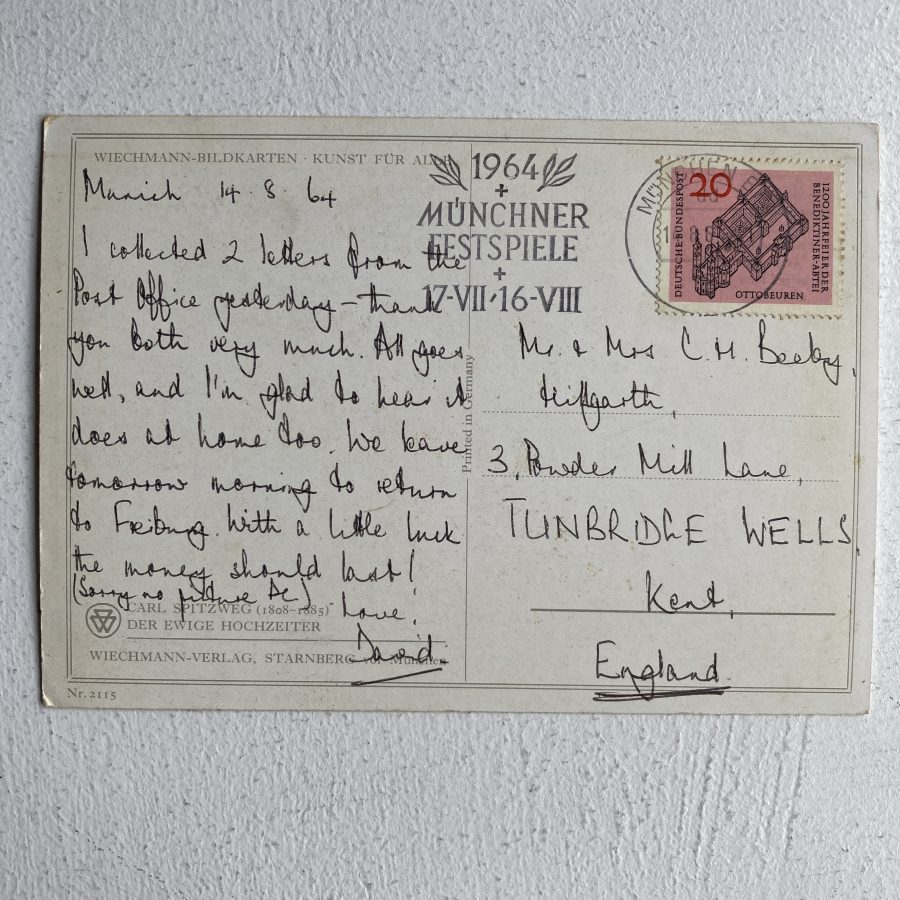 WIECHMANN-BILDKARTEN · KUNST FÜR
Munich 14.8.64
I collected 2 letters from the
Post Office yesterday – thank
you both very much. All goes
well, and I'm glad to hear it
does at home too. We leave
tomorrow morning to return
to Freiburg. With a little luck
the money should last!
(Sorry no picture PC)
Love,
David
CARL SPITZWEG (1808–1885)
DER EWIGE HOCHZEITER
WIECHMANN-VERLAG, STARNBERG vor München
Nr. 2115
Printed in Germany
1964
MÜNCHNER
FESTSPIELE
17-VII-16-VIII
MÜNCHEN
DEUTSCHE BUNDESPOST
20
1200 JAHRFEIER DER
BENEDIKTINER-ABTEI
OTTOBEUREN
Mr. & Mrs C. H. Beeby,
3, Powder Mill Lane,
TUNBRIDGE WELLS,
Kent,
England.